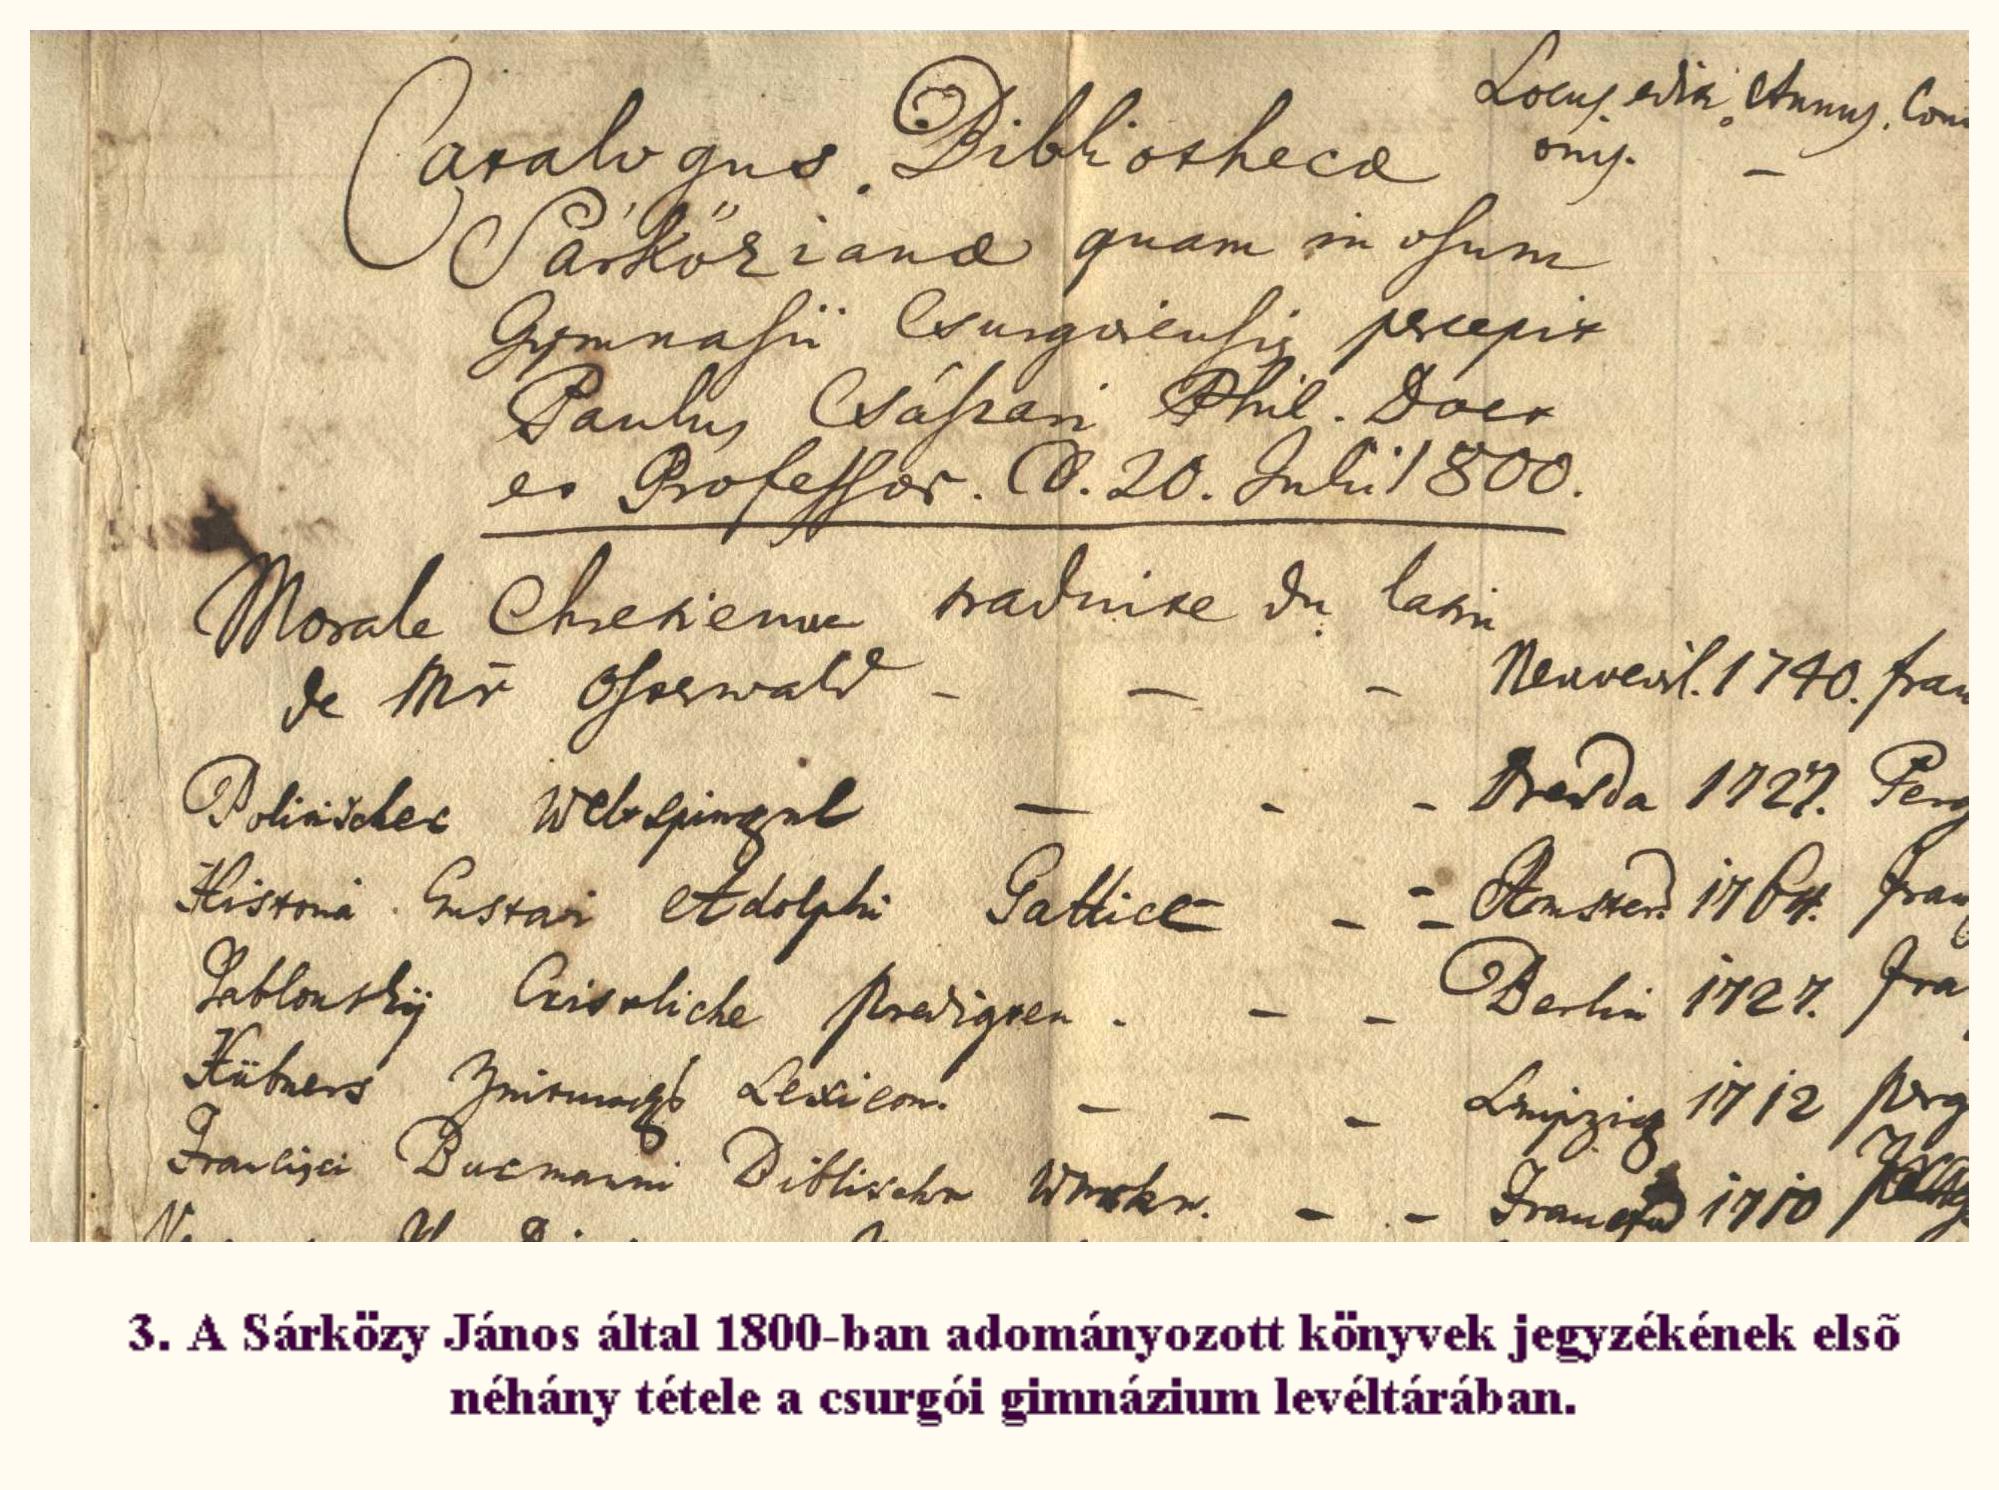 Catalogus Bibliothecæ
Locus editi- Annus. Com
onis. -
Sárkőzianæ quam in usum
Gymnasii Csurgoiensis percepit
Paulus Császári Phil. Doct
et Professor. D. 20. Julii 1800.
Morale Chretienne traduite du latin
de Mr Osterwald - - - Neuvevil. 1740. fran
Politischer - - - Dresda 1727. Perg
Historia Gustavi Adolphi Gallice - - Amsterd 1764. fran
Jablonskÿ Cristliche predigten. - - Berlin 1727. fra
Hübners Lexicon. - - - Leipzig 1712 perg
Francisci Burmanni Biblische - - 1710
3. A Sárközy János által 1800-ban adományozott könyvek jegyzékének elsõ
néhány tétele a csurgói gimnázium levéltárában.